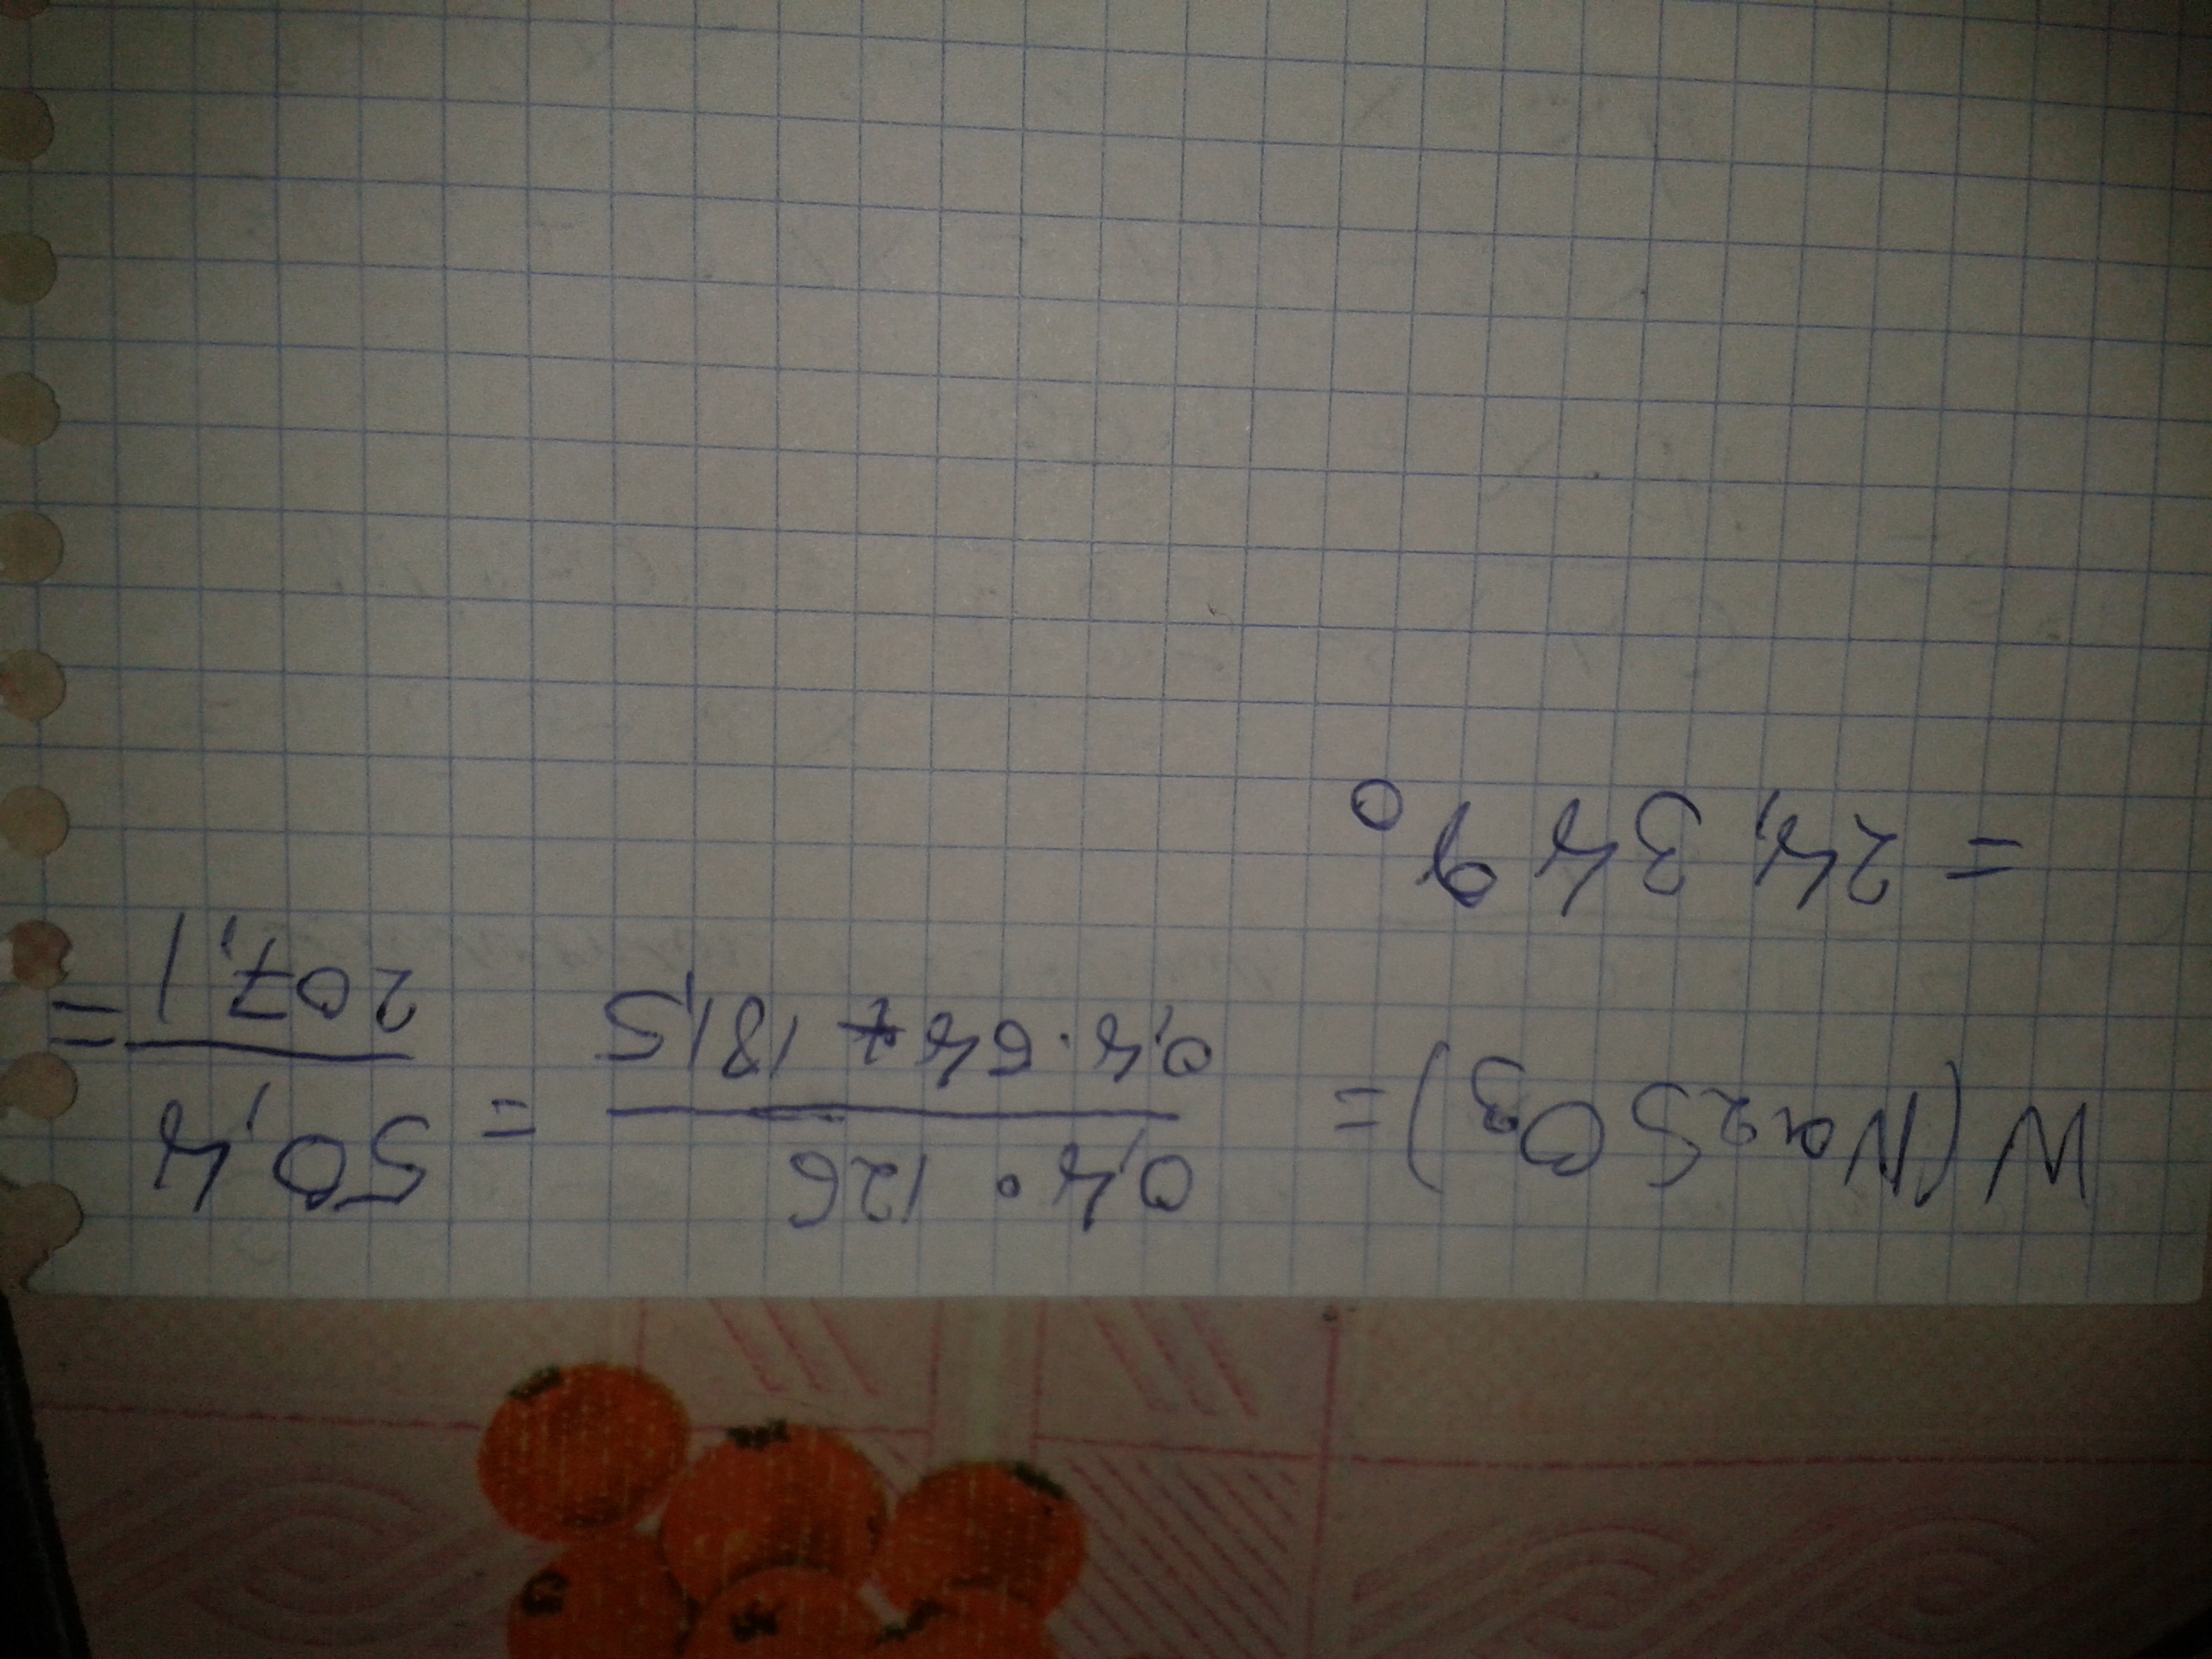 W(Na2SO3) = 0,4 · 126 / 0,4 · 64 + 181,5 = 50,4 / 207,1 =
= 24,34 %